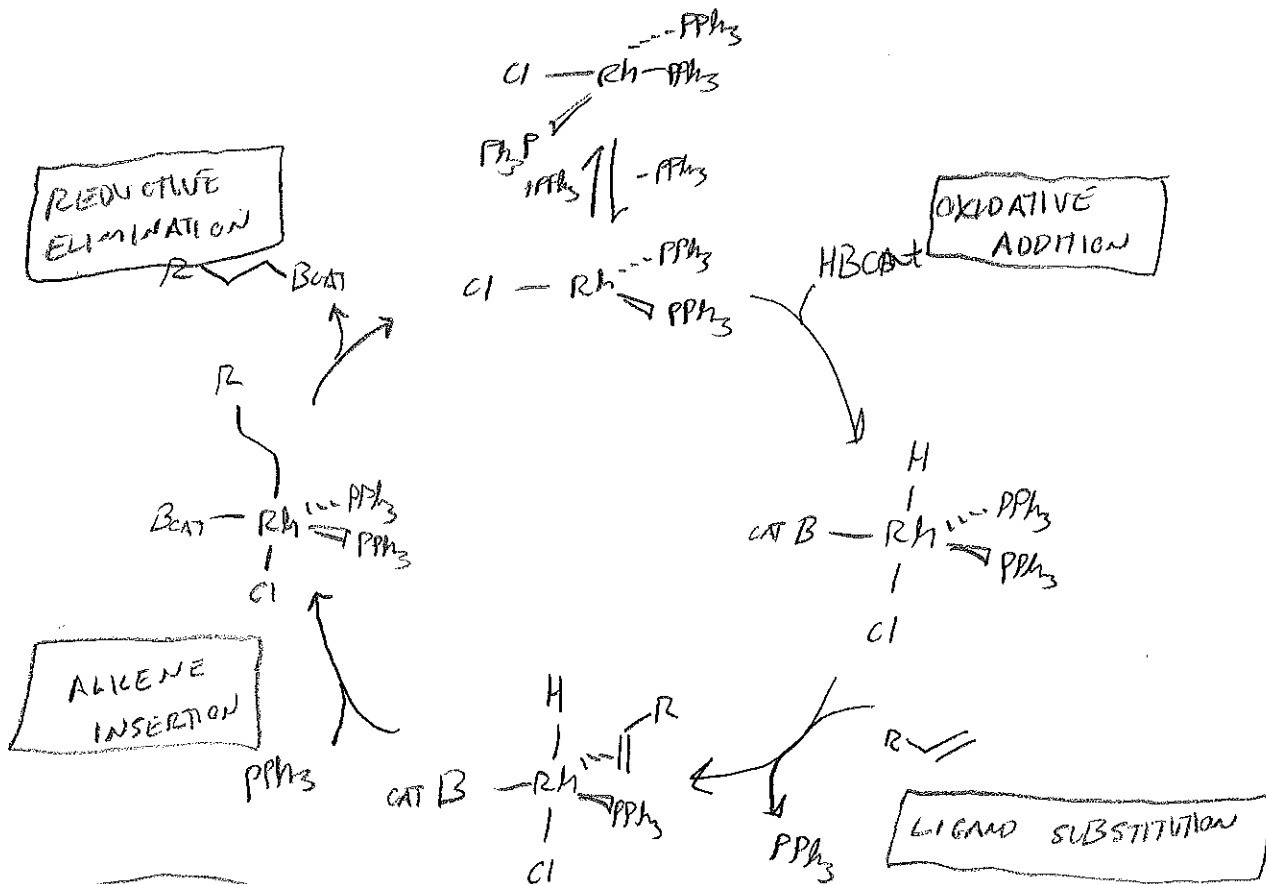 PPh3
Cl — Rh — PPh3
Ph3P
+PPh3
-PPh3
REDUCTIVE
ELIMINATION
R BCAT
OXIDATIVE
ADDITION
HBCat
Cl — Rh PPh3
PPh3
R
BCAT — Rh PPh3
PPh3
Cl
H
CAT B — Rh PPh3
PPh3
Cl
ALKENE
INSERTION
PPh3
H
R
CAT B — Rh
PPh3
Cl
R
PPh3
LIGAND SUBSTITUTION